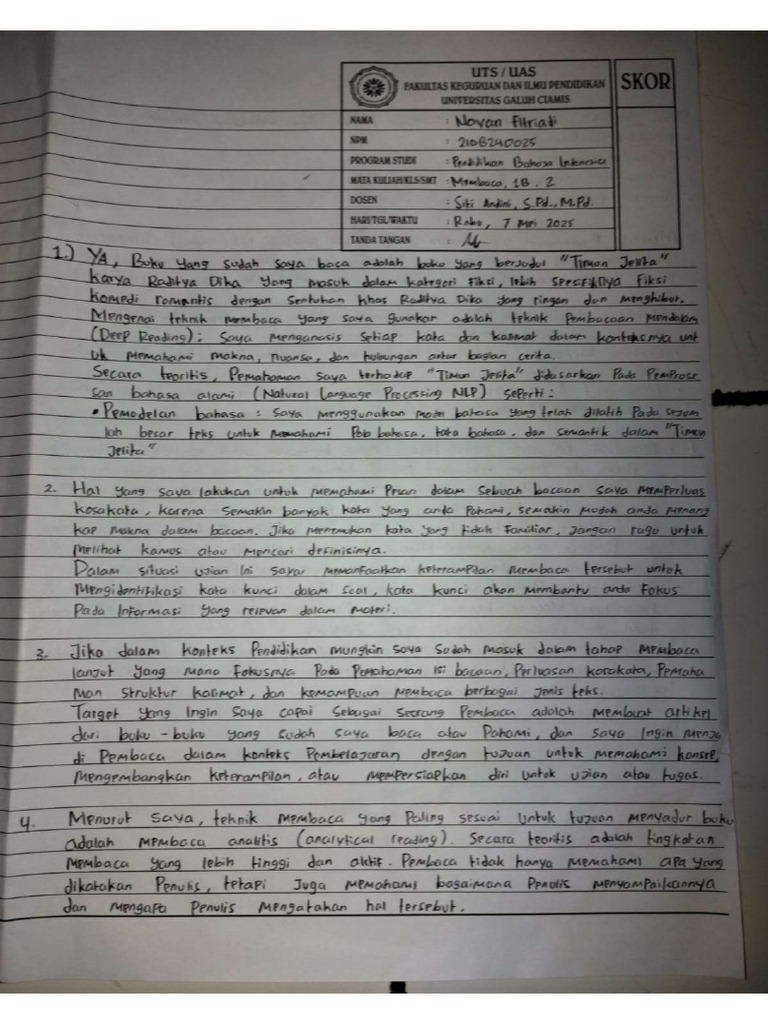 UTS / UAS
FAKULTAS KEGURUAN DAN ILMU PENDIDIKAN
UNIVERSITAS GALUH CIAMIS
SKOR
NAMA : Novan Fitriadi
NPM : 2108240025
PROGRAM STUDI : Pendidikan Bahasa Indonesia
MATA KULIAH/KLS/SMT : Membaca, 1B, 2
DOSEN : Siti Andini, S.Pd., M.Pd.
HARI/TGL/WAKTU : Rabu, 7 Mei 2025
TANDA TANGAN :
1.) YA, Buku yang sudah saya baca adalah buku yang berjudul "Timun Jelita"
karya Raditya Dika yang masuk dalam kategori fiksi, lebih spesifiknya fiksi
komedi romantis dengan sentuhan khas Raditya Dika yang ringan dan menghibur.
Mengenai teknik membaca yang saya gunakan adalah teknik Pembacaan Mendalam
(Deep Reading): Saya menganasis setiap kata dan kalimat dalam konteksnya unt
uk memahami makna, nuansa, dan hubungan antar bagian cerita.
Secara teoritis, Pemahaman saya terhadap "Timun Jelita" didasarkan Pada Pemprose
san bahasa alami (Natural Language Processing NLP) seperti:
• Pemodelan bahasa : saya menggunakan model bahasa yang telah dilatih Pada sejum
lah besar teks untuk memahami Pola bahasa, tata bahasa, dan semantik dalam "Timun
Jelita"
2. Hal yang saya lakukan untuk memahami Pesan dalam sebuah bacaan saya memperluas
kosakata, karena semakin banyak kata yang anda Pahami, semakin mudah anda menang
kap makna dalam bacaan. Jika menemukan kata yang tidak familiar, jangan ragu untuk
melihat kamus atau mencari definisinya.
Dalam situasi ujian ini saya memanfaatkan keterampilan membaca tersebut untuk
mengidentifikasi kata kunci dalam soal, kata kunci akan membantu anda fokus
Pada informasi yang relevan dalam materi.
3. Jika dalam konteks Pendidikan mungkin saya sudah masuk dalam tahap membaca
lanjut yang mana fokusnya Pada Pemahaman isi bacaan, Perluasan kosakata, Pemaha
man struktur kalimat, dan kemampuan membaca berbagai jenis teks.
Target yang ingin saya capai sebagai seorang Pembaca adalah membuat artikel
dari buku-buku yang sudah saya baca atau Pahami, dan saya ingin menja
di Pembaca dalam konteks Pembelajaran dengan tujuan untuk memahami konsep,
mengembangkan keterampilan, atau mempersiapkan diri untuk ujian atau tugas.
4. Menurut saya, teknik membaca yang Paling sesuai untuk tujuan menyadur buku
adalah membaca analitis (analytical reading). Secara teoritis adalah tingkatan
membaca yang lebih tinggi dan aktif. Pembaca tidak hanya memahami apa yang
dikatakan Penulis, tetapi juga memahami bagaimana Penulis menyampaikannya
dan mengapa Penulis mengatakan hal tersebut.